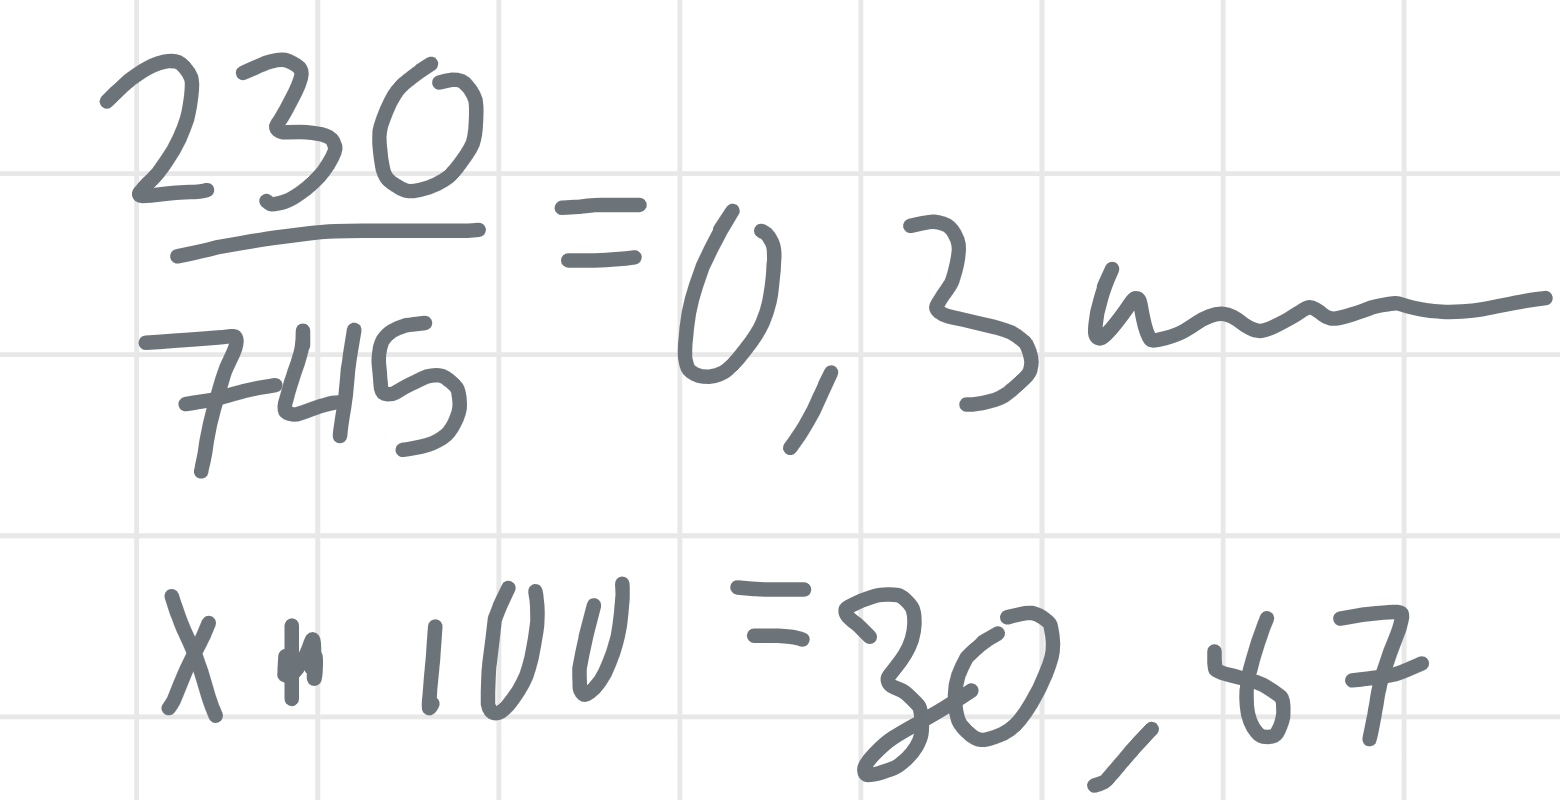 230
745
= 0,3
x * 100 = 30,87